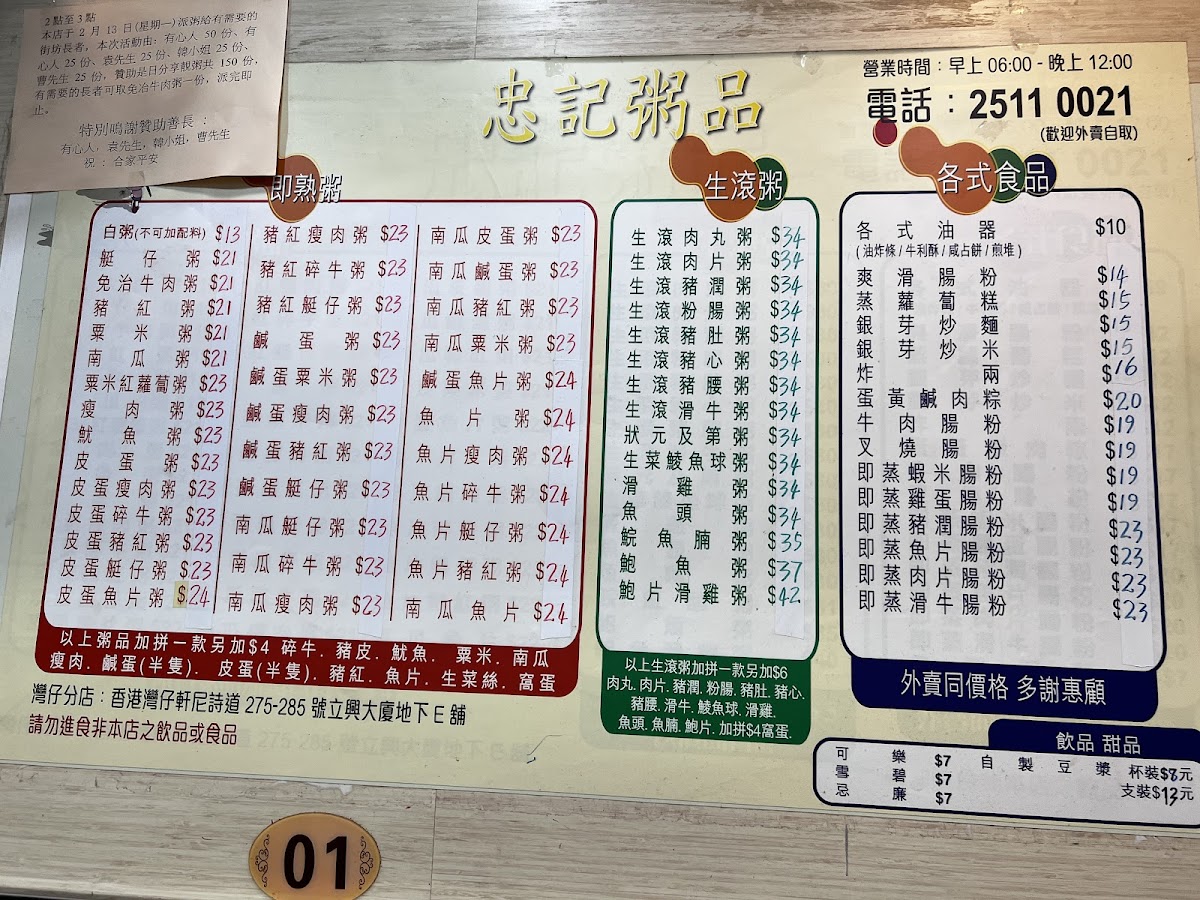 2點至3點
本店于 2 月 13 日(星期一)派粥給有需要的
街坊長者，本次活動由：有心人 50 份、有
心人 25 份、袁先生 25 份、韓小姐 25 份、
曹先生 25 份，贊助是日分享靚粥共 150 份，
有需要的長者可取免冶牛肉粥一份，派完即
止。
特別鳴謝贊助善長：
有心人，袁先生，韓小姐，曹先生
祝：合家平安
忠記粥品
營業時間：早上 06:00 - 晚上 12:00
電話：2511 0021
(歡迎外賣自取)
即熟粥
白粥(不可加配料) $13
艇仔粥 $21
免治牛肉粥 $21
豬紅粥 $21
粟米粥 $21
南瓜粥 $21
粟米紅蘿蔔粥 $23
瘦肉粥 $23
魷魚粥 $23
皮蛋粥 $23
皮蛋瘦肉粥 $23
皮蛋碎牛粥 $23
皮蛋豬紅粥 $23
皮蛋艇仔粥 $23
皮蛋魚片粥 $24
豬紅瘦肉粥 $23
豬紅碎牛粥 $23
豬紅艇仔粥 $23
鹹蛋粥 $23
鹹蛋粟米粥 $23
鹹蛋瘦肉粥 $23
鹹蛋豬紅粥 $23
鹹蛋艇仔粥 $23
南瓜艇仔粥 $23
南瓜碎牛粥 $23
南瓜瘦肉粥 $23
南瓜皮蛋粥 $23
南瓜鹹蛋粥 $23
南瓜豬紅粥 $23
南瓜粟米粥 $23
鹹蛋魚片粥 $24
魚片粥 $24
魚片瘦肉粥 $24
魚片碎牛粥 $24
魚片艇仔粥 $24
魚片豬紅粥 $24
南瓜魚片 $24
以上粥品加拼一款另加$4 碎牛. 豬皮. 魷魚. 粟米. 南瓜
瘦肉. 鹹蛋(半隻). 皮蛋(半隻). 豬紅. 魚片. 生菜絲. 窩蛋
灣仔分店：香港灣仔軒尼詩道 275-285 號立興大廈地下 E 舖
請勿進食非本店之飲品或食品
生滾粥
生滾肉丸粥 $34
生滾肉片粥 $34
生滾豬潤粥 $34
生滾粉腸粥 $34
生滾豬肚粥 $34
生滾豬心粥 $34
生滾豬腰粥 $34
生滾滑牛粥 $34
狀元及第粥 $34
生菜鯪魚球粥 $34
滑雞粥 $34
魚頭粥 $34
鯇魚腩粥 $35
鮑魚粥 $37
鮑片滑雞粥 $42
以上生滾粥加拼一款另加$6
肉丸. 肉片. 豬潤. 粉腸. 豬肚. 豬心.
豬腰. 滑牛. 鯪魚球. 滑雞.
魚頭. 魚腩. 鮑片. 加拼$4窩蛋.
各式食品
各式油器 $10
(油炸條 / 牛利酥 / 咸占餅 / 煎堆)
爽滑腸粉 $14
蒸蘿蔔糕 $15
銀芽炒麵 $15
銀芽炒米 $15
炸兩 $16
蛋黃鹹肉粽 $20
牛肉腸粉 $19
叉燒腸粉 $19
即蒸蝦米腸粉 $19
即蒸雞蛋腸粉 $19
即蒸豬潤腸粉 $23
即蒸魚片腸粉 $23
即蒸肉片腸粉 $23
即蒸滑牛腸粉 $23
外賣同價格 多謝惠顧
飲品 甜品
可樂 $7
雪碧 $7
忌廉 $7
自製豆漿 杯裝$8元
支裝$13元
01